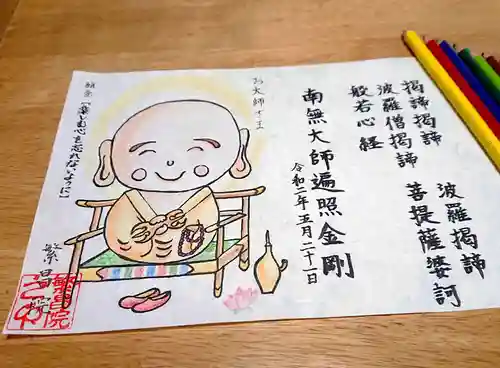 羯諦羯諦
波羅僧羯諦
般若心経
波羅羯諦
菩提薩婆訶
南無大師遍照金剛
令和二年五月二十一日
お大師さま
願意「楽しむ心を忘れないように」
繁昌院